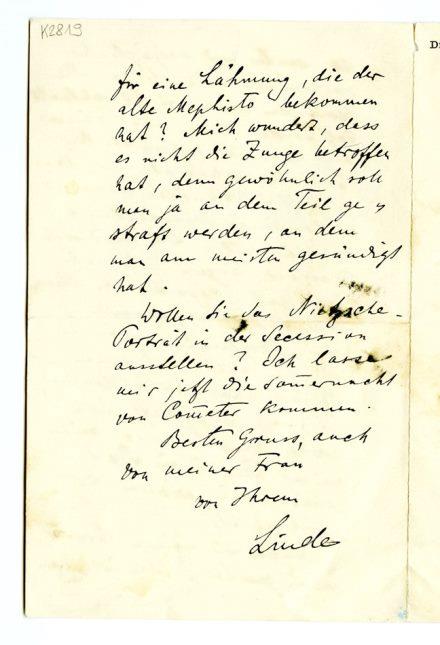 K2819
für eine Lähmung, die der
alte Mephisto bekommen
hat? Mich wundert, dass
es nicht die Zunge betroffen
hat, denn gewöhnlich soll
man ja an dem Teil ge„
straft werden, an dem
man am meisten gesündigt
hat.
Wollen Sie das Nietzsche-
Porträt in der Secession
ausstellen? Ich lasse
mir jetzt die Som̄ernacht
von Com̄eter kommen.
Besten Gruss, auch
von meiner Frau
von Ihrem
Linde